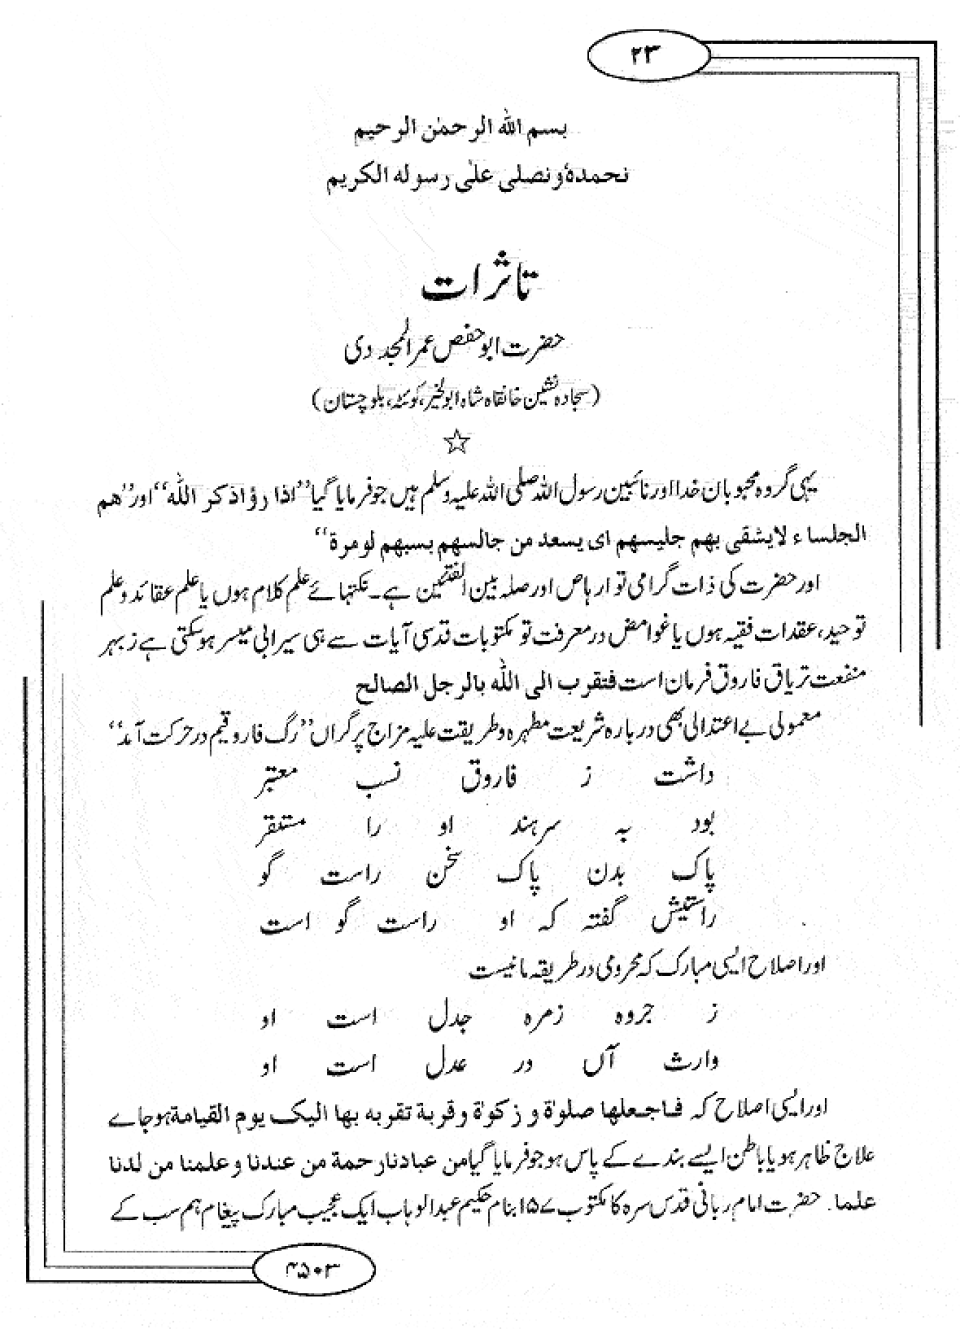 ۲۳
بسم اللہ الرحمٰن الرحیم
نحمدہٗ ونصلی علیٰ رسولہ الکریم
تاثرات
حضرت ابو حفص عمر المجددی
(سجادہ نشین خانقاہ شاہ ابوالخیر، کوئٹہ، بلوچستان)
☆
یہی گروہ محبوبان خدا اور نائبین رسول اللہ صلی اللہ علیہ وسلم ہیں جو فرمایا گیا ”اذا رؤا ذکر اللّٰہ“ اور ”ھم
الجلساء لایشقی بھم جلیسھم ای یسعد من جالسھم بسبھم لومرۃ“
اور حضرت کی ذات گرامی تو ارہاص اور صلہ بین الفئتین ہے۔ نکتہائے علم کلام ہوں یا علم عقائد و علم
توحید، عقدات فقیہ ہوں یا غوامض در معرفت تو مکتوبات قدسی آیات سے ہی سیرابی میسر ہوسکتی ہے زبہر
منفعت تریاق فاروق فرمان است فتقرب الی اللّٰہ بالرجل الصالح
معمولی بے اعتدالی بھی دربارہ شریعت مطہرہ و طریقت علیہ مزاج پر گراں ”رگ فاروقیم در حرکت آمد“
داشت ز فاروق نسب معتبر
بود بہ سرہند او را مستقر
پاک بدن پاک سخن راست گو
راستیش گفتہ کہ او راست گو است
اور اصلاح ایسی مبارک کہ محرومی در طریقہ ما نیست
ز جروہ زمرہ جدل است او
وارث آں در عدل است او
اور ایسی اصلاح کہ فاجعلھا صلوٰۃ و زکوٰۃ و قربۃ تقربہ بھا الیک یوم القیامۃ ہو جاے
علاج ظاہر ہو یا باطن ایسے بندے کے پاس ہو جو فرمایا گیا من عبادنا رحمۃ من عندنا و علمنا من لدنا
علما. حضرت امام ربانی قدس سرہ کا مکتوب ۱۵۷ بنام حکیم عبدالوہاب ایک عجیب مبارک پیغام ہم سب کے
۴۵۰۳